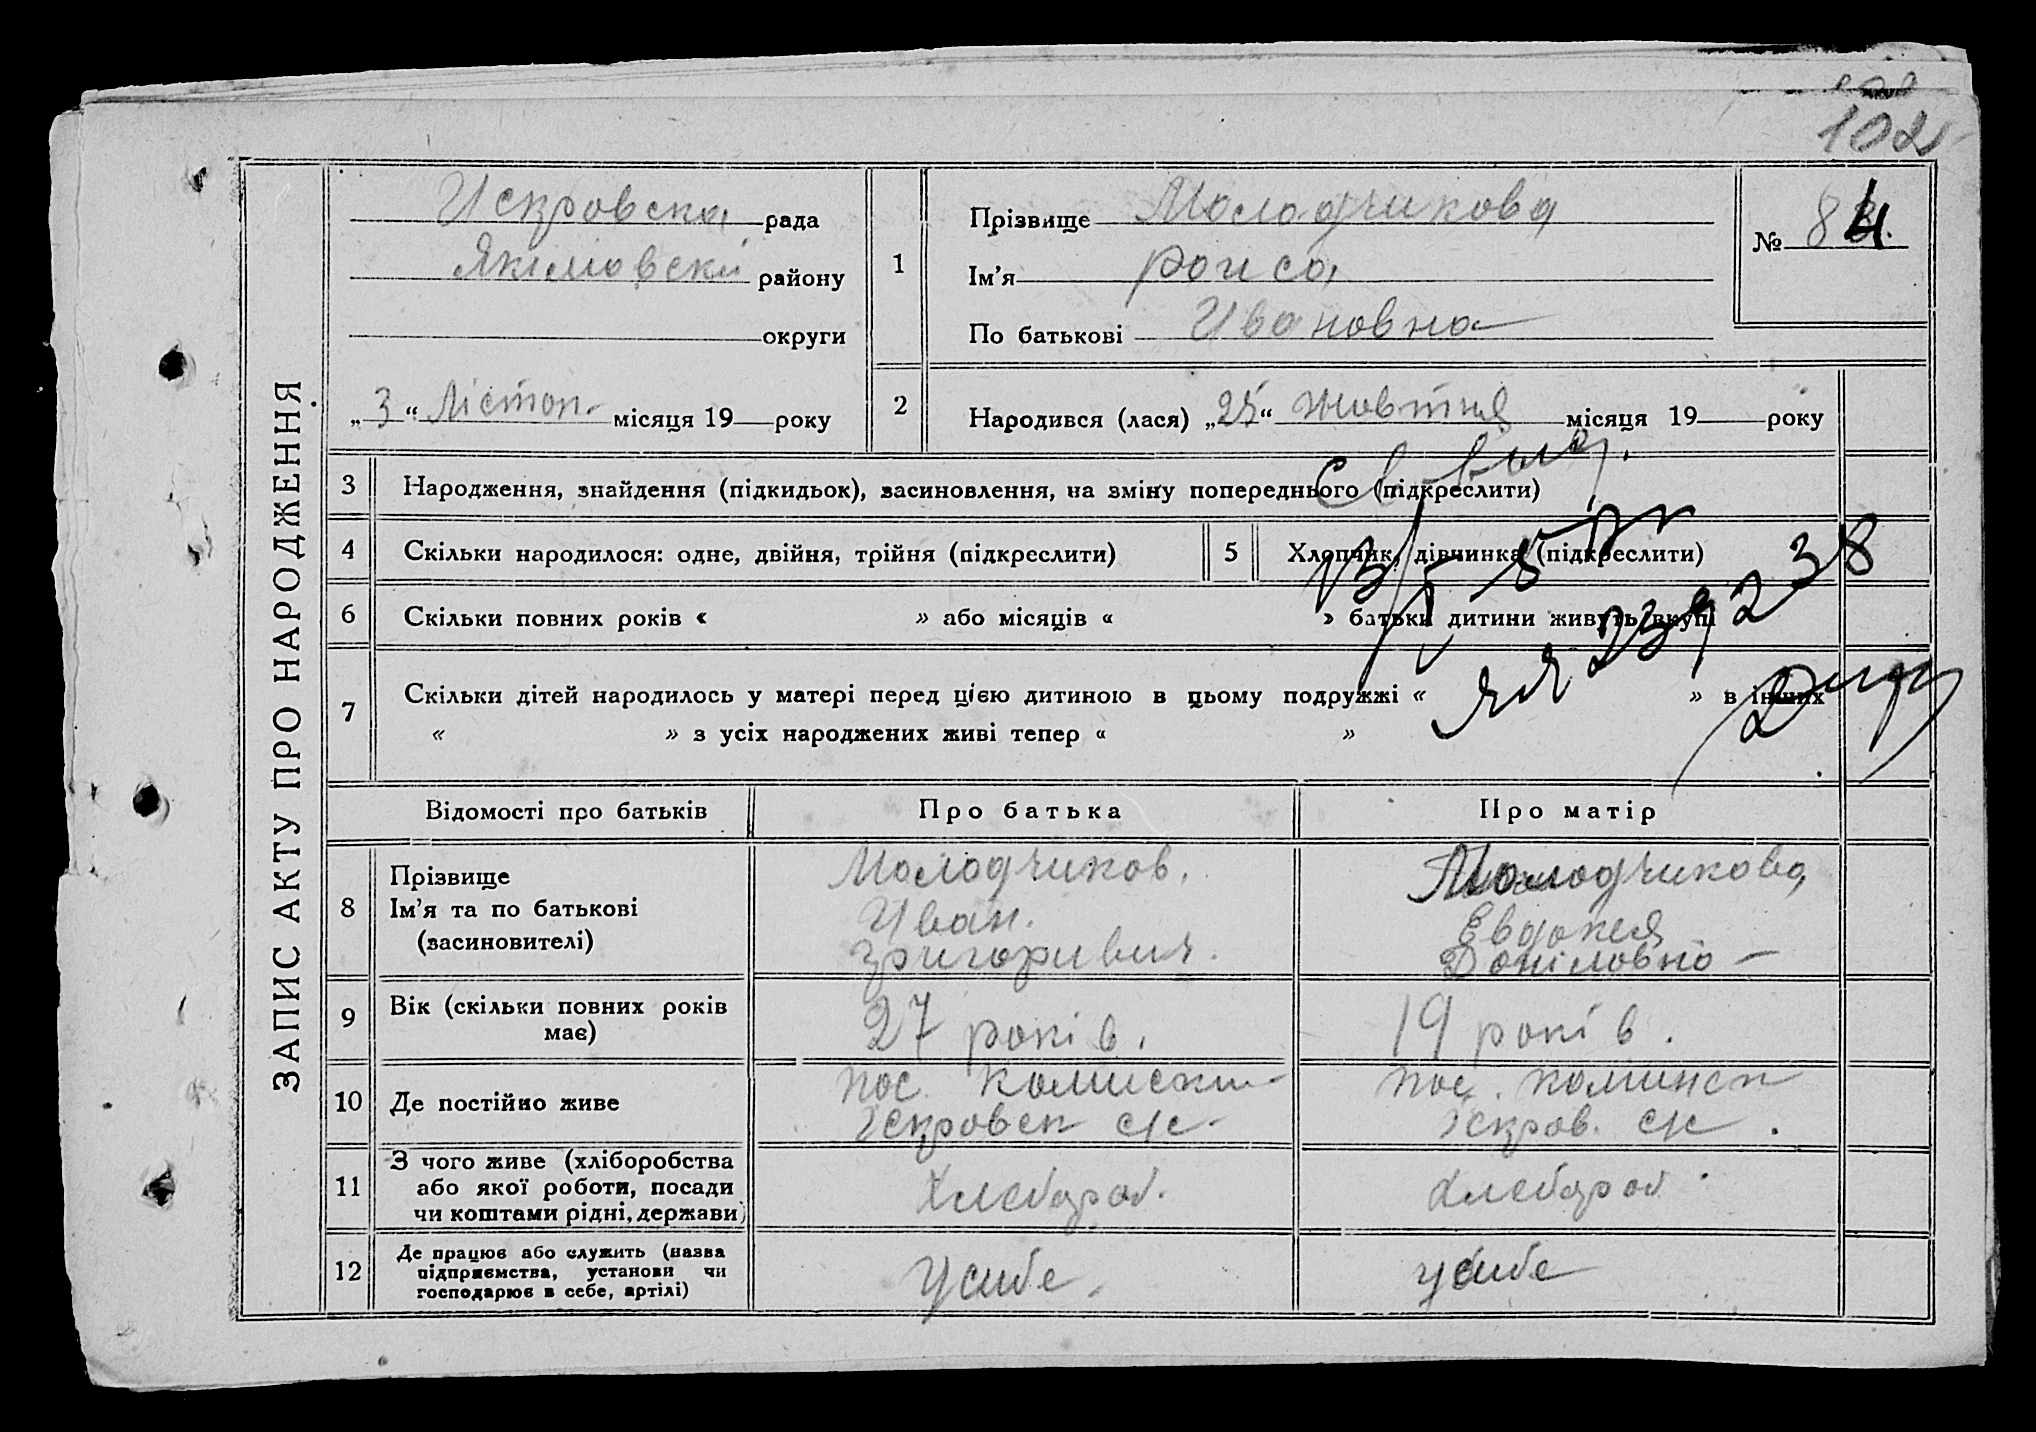 102
ЗАПИС АКТУ ПРО НАРОДЖЕННЯ
Искровска рада
Якімовски району
округи
„3“ Лістоп. місяця 19 року
1
Прізвище Молодчикова
Ім'я Роиса
По батькові Ивановна
№ 84.
2
Народився (лася) „25“ жовтня місяця 19 року
3 Народження, знайдення (підкидьок), засиновлення, на зміну попереднього (підкреслити)
4 Скільки народилося: одне, двійня, трійня (підкреслити)
5 Хлопчик, дівчинка (підкреслити)
6 Скільки повних років « » або місяців « » батьки дитини живуть вкупі
7 Скільки дітей народилось у матері перед цією дитиною в цьому подружжі « » в інших
« » з усіх народжених живі тепер « »
Відомості про батьків Про батька Про матір
8 Прізвище
Ім'я та по батькові
(засиновителі)
Молодчиков.
Иван.
Григоривич.
Молодчикова,
Евдокея
Доніловно
9 Вік (скільки повних років
має)
27 років.
19 років.
10 Де постійно живе
пос. Комиски
Іскровск с/с.
пос. коминск
Іскров. с/с.
11 З чого живе (хліборобства
або якої роботи, посади
чи коштами рідні, держави)
Хлебороб.
Хлебороб.
12 Де працює або служить (назва
підприємства, установи чи
господарює в себе, артілі)
Усибе.
усибе